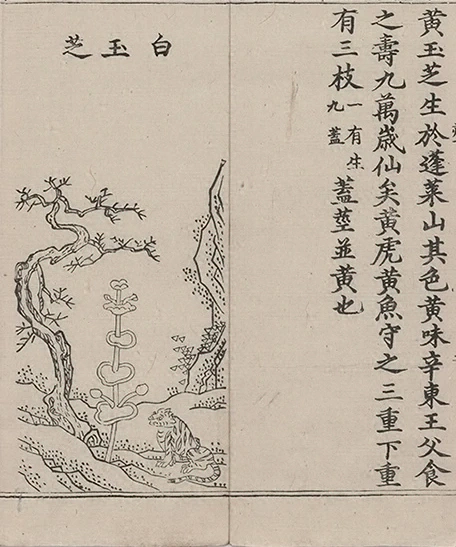 黃玉芝生於蓬萊山其色黃味辛東王父食
之壽九萬歲仙矣黃虎黃魚守之三重下重
有三枝一有生九蓋蓋莖並黃也
白玉芝